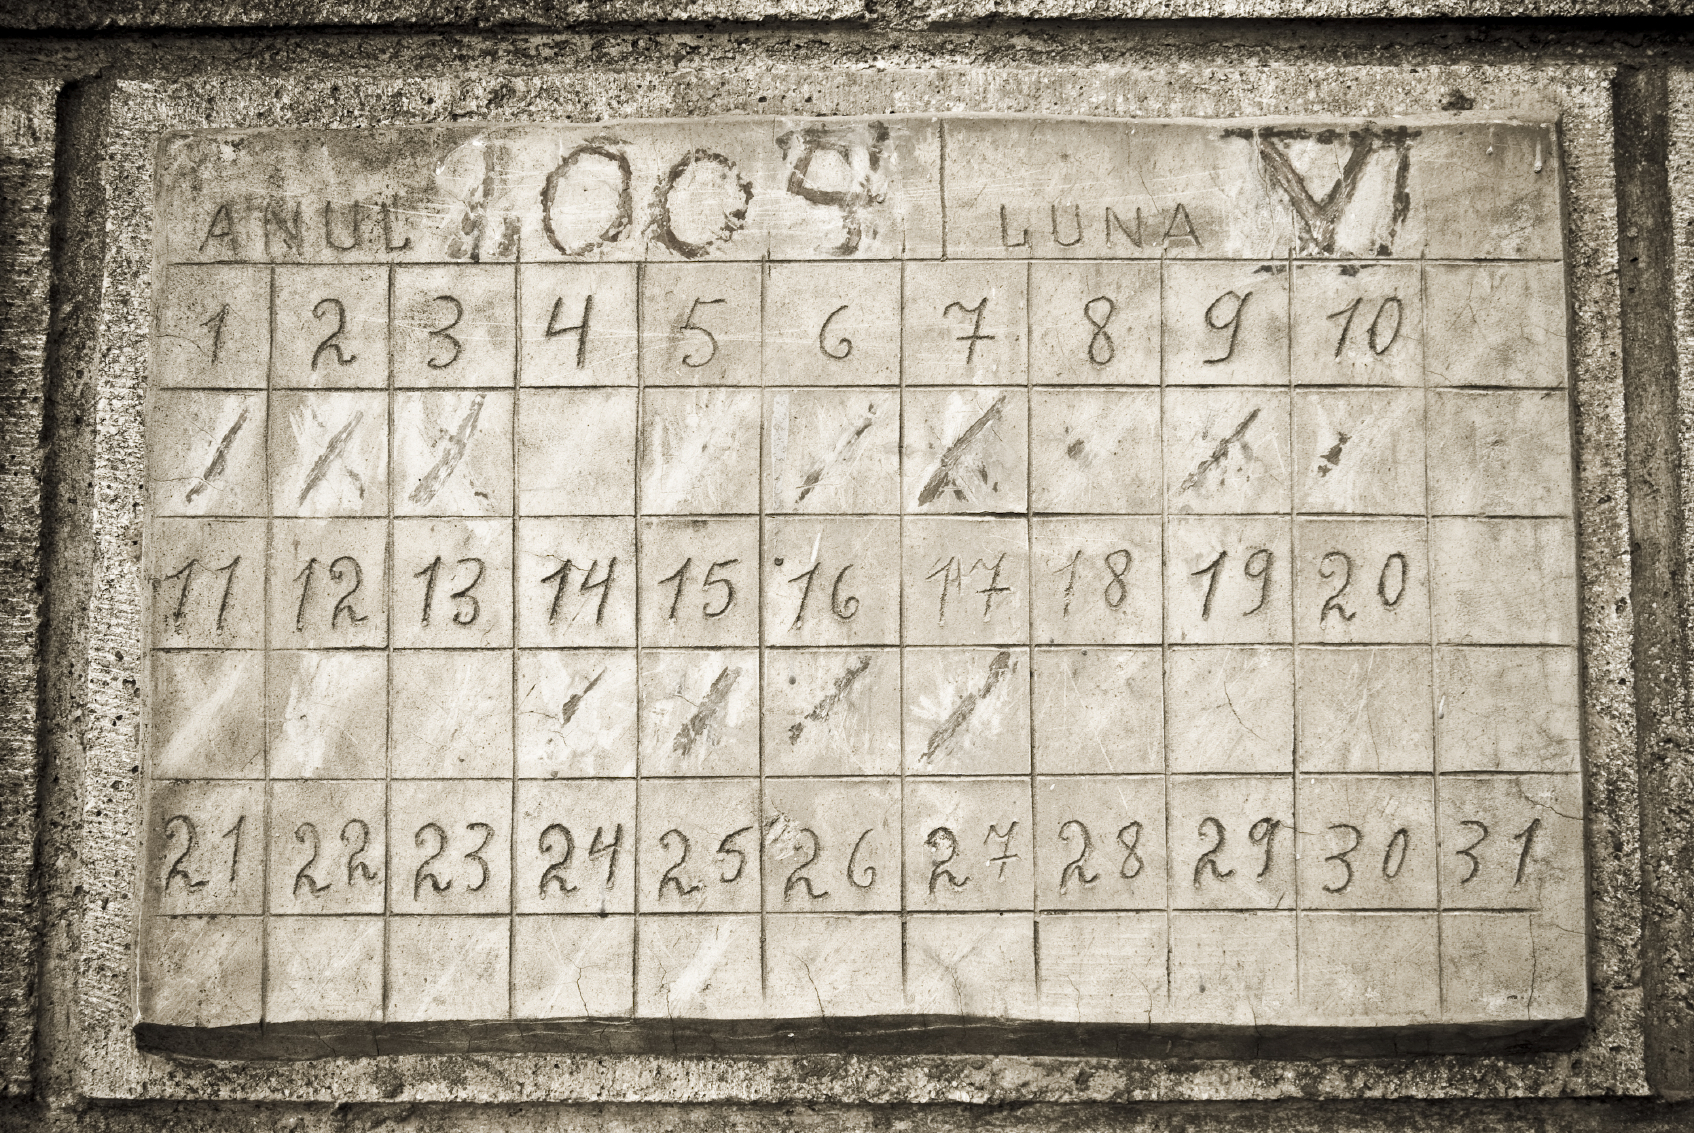 ANUL 1009 LUNA VI
1 2 3 4 5 6 7 8 9 10
11 12 13 14 15 16 17 18 19 20
21 22 23 24 25 26 27 28 29 30 31